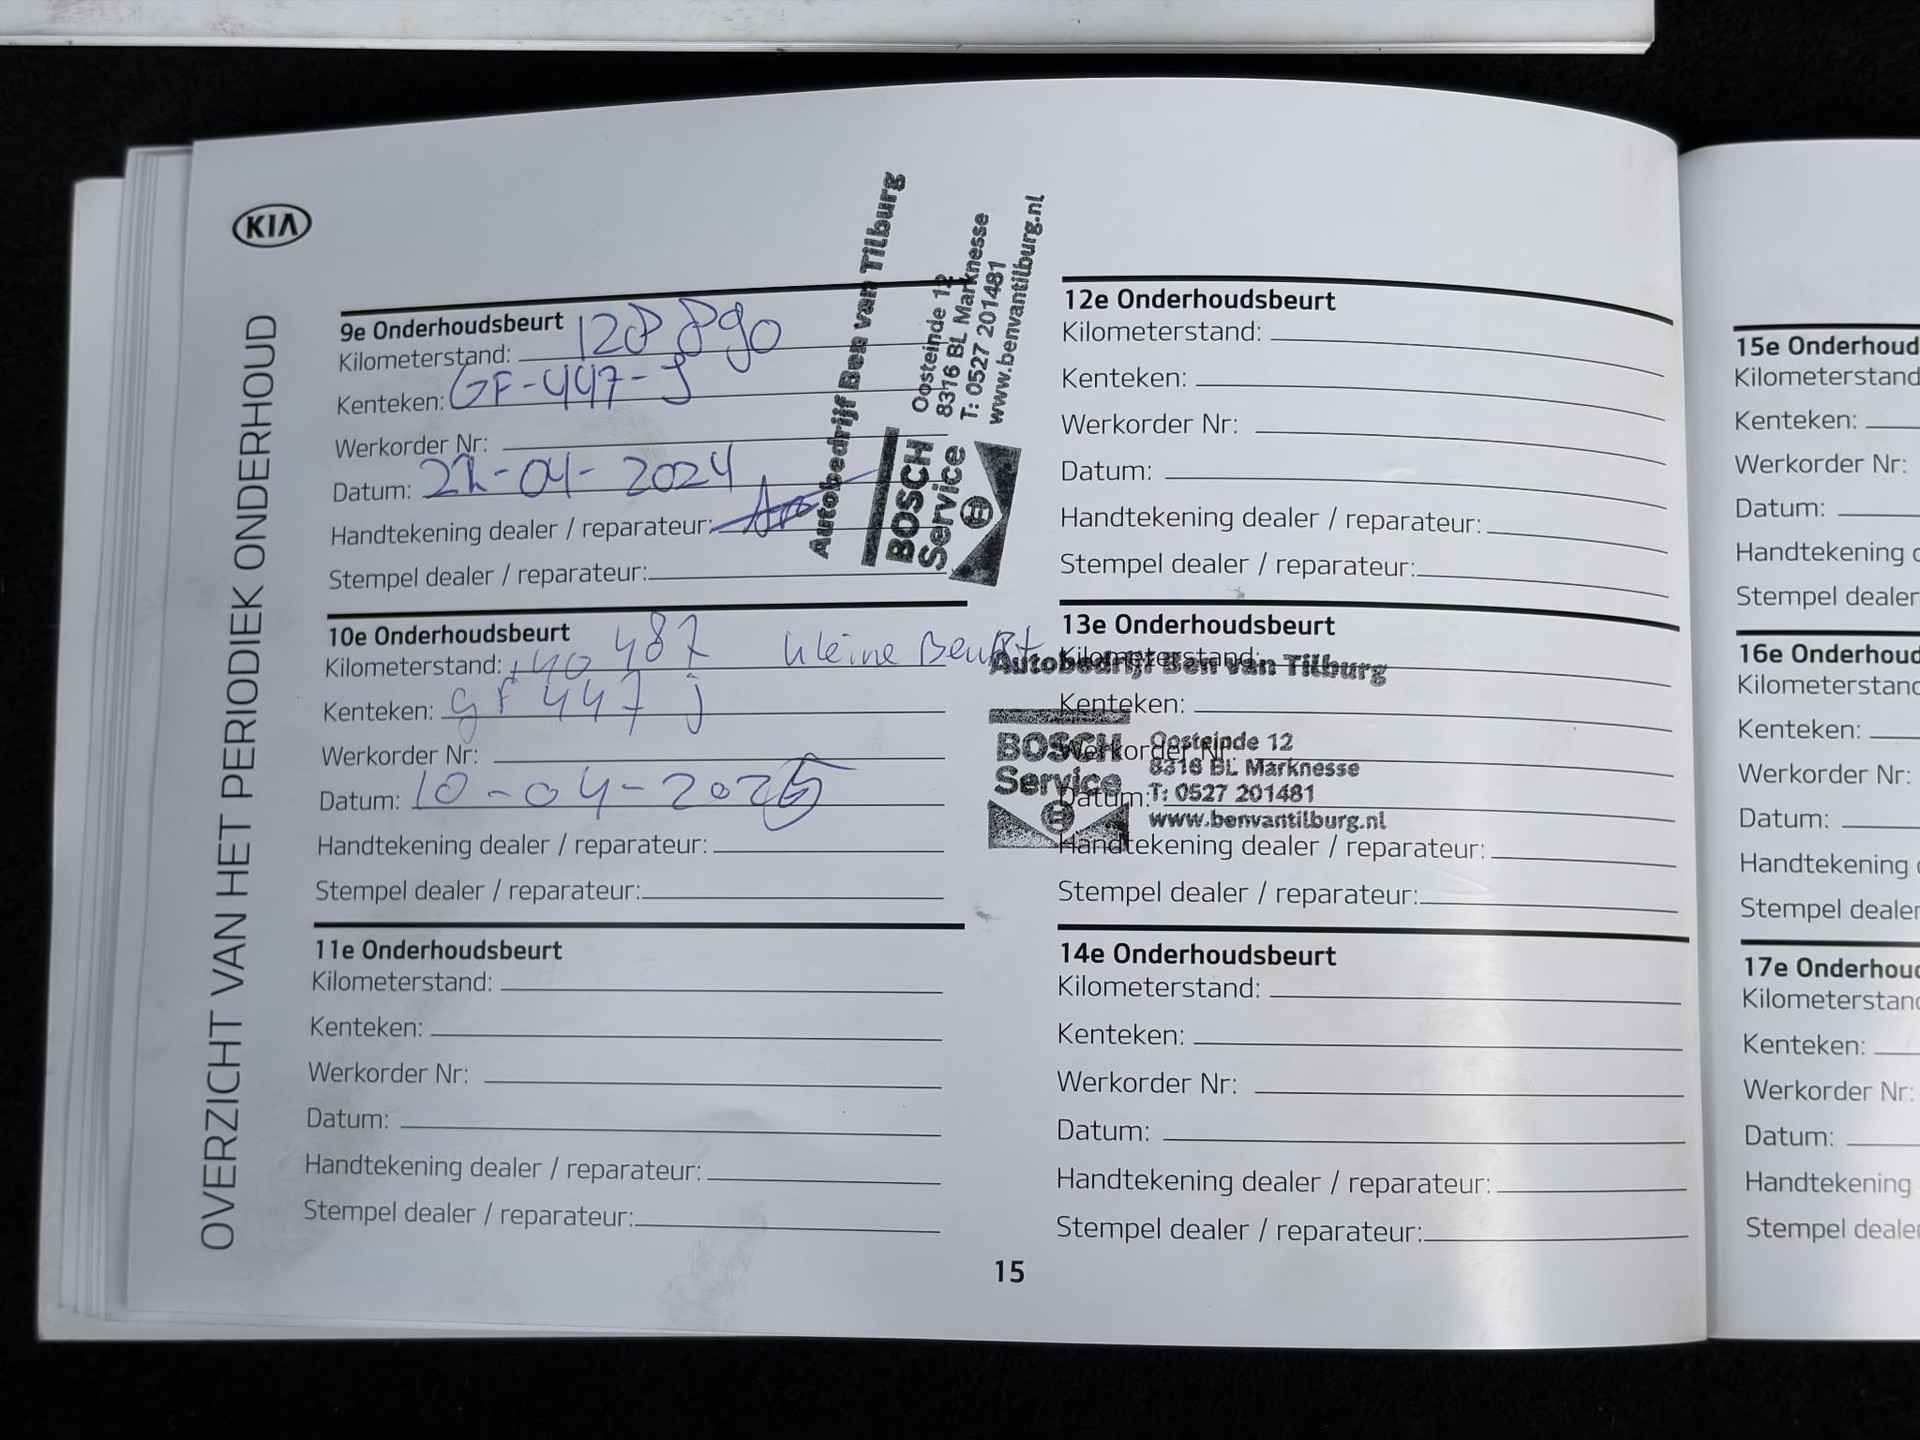 KIA
OVERZICHT VAN HET PERIODIEK ONDERHOUD
9e Onderhoudsbeurt
Kilometerstand: 128890
Kenteken: GF-447-J
Werkorder Nr:
Datum: 22-04-2024
Handtekening dealer / reparateur:
Stempel dealer / reparateur:
Autobedrijf Ben van Tilburg
BOSCH
Service
Oosteinde 12
8316 BL Marknesse
T: 0527 201481
www.benvantilburg.nl
10e Onderhoudsbeurt
Kilometerstand: 140 487 kleine Beurt
Kenteken: gf 447 j
Werkorder Nr:
Datum: 10-04-2025
Handtekening dealer / reparateur:
Stempel dealer / reparateur:
11e Onderhoudsbeurt
Kilometerstand:
Kenteken:
Werkorder Nr:
Datum:
Handtekening dealer / reparateur:
Stempel dealer / reparateur:
12e Onderhoudsbeurt
Kilometerstand:
Kenteken:
Werkorder Nr:
Datum:
Handtekening dealer / reparateur:
Stempel dealer / reparateur:
13e Onderhoudsbeurt
Kilometerstand:
Kenteken:
Werkorder Nr:
Datum:
Handtekening dealer / reparateur:
Stempel dealer / reparateur:
Autobedrijf Ben van Tilburg
BOSCH
Service
Oosteinde 12
8316 BL Marknesse
T: 0527 201481
www.benvantilburg.nl
14e Onderhoudsbeurt
Kilometerstand:
Kenteken:
Werkorder Nr:
Datum:
Handtekening dealer / reparateur:
Stempel dealer / reparateur:
15
15e Onderhoud
Kilometerstand
Kenteken:
Werkorder Nr:
Datum:
Handtekening
Stempel dealer
16e Onderhoud
Kilometerstand
Kenteken:
Werkorder Nr:
Datum:
Handtekening
Stempel dealer
17e Onderhoud
Kilometerstand
Kenteken:
Werkorder Nr:
Datum:
Handtekening
Stempel dealer